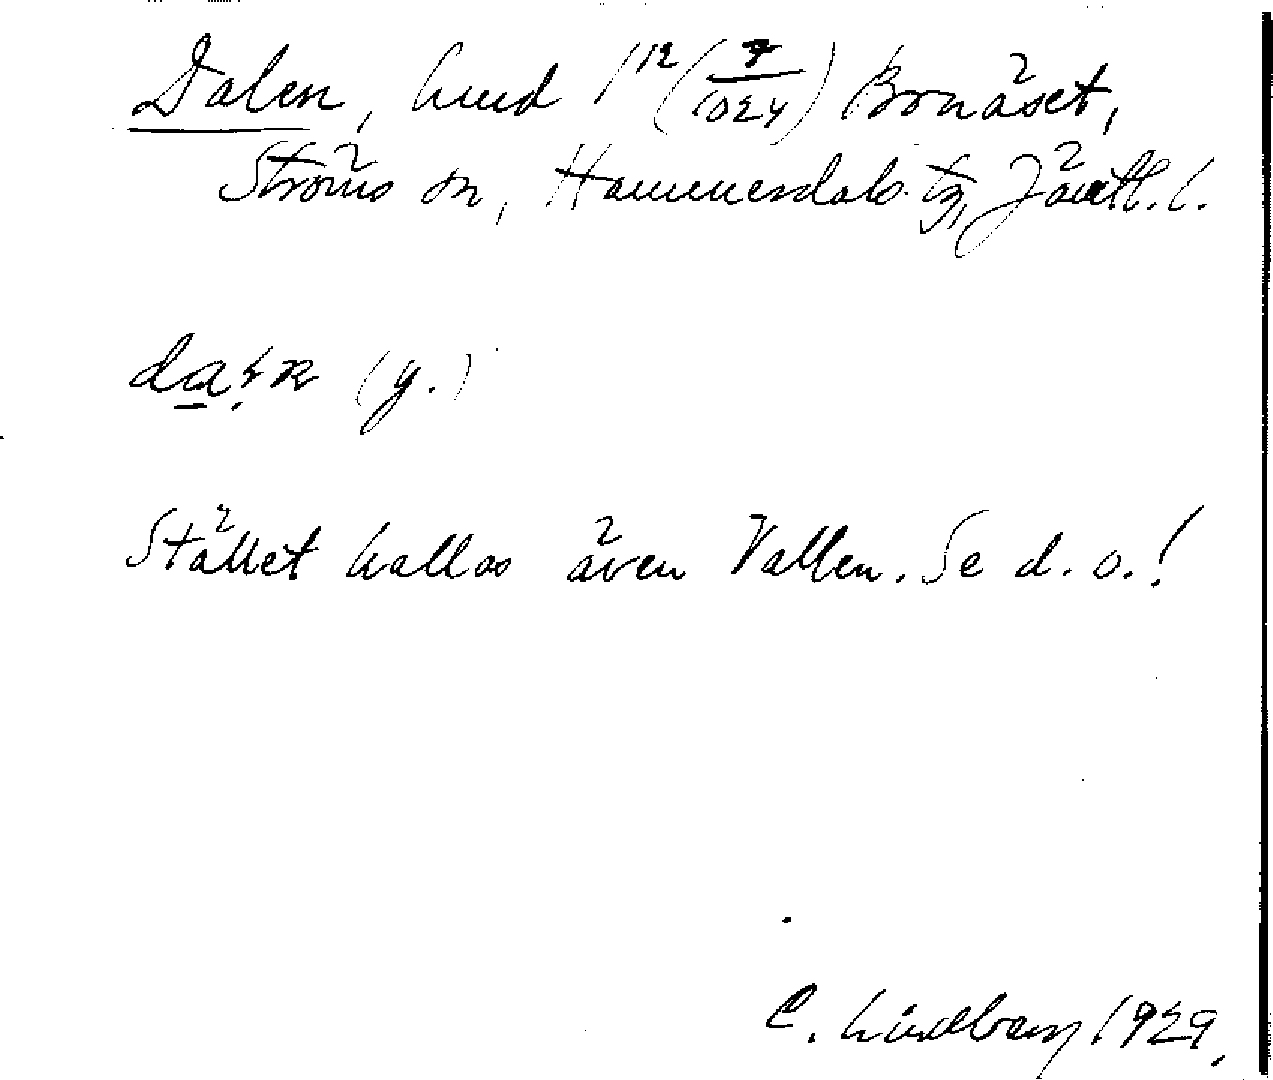 Dalen, hmd 1¹² (7/1024) Bonäset,
Ströms sn, Hammerdals tg, Jämtl. l.
(y.)
Stället kallas även Vallen. Se d. o.!
C. Lindberg 1929.